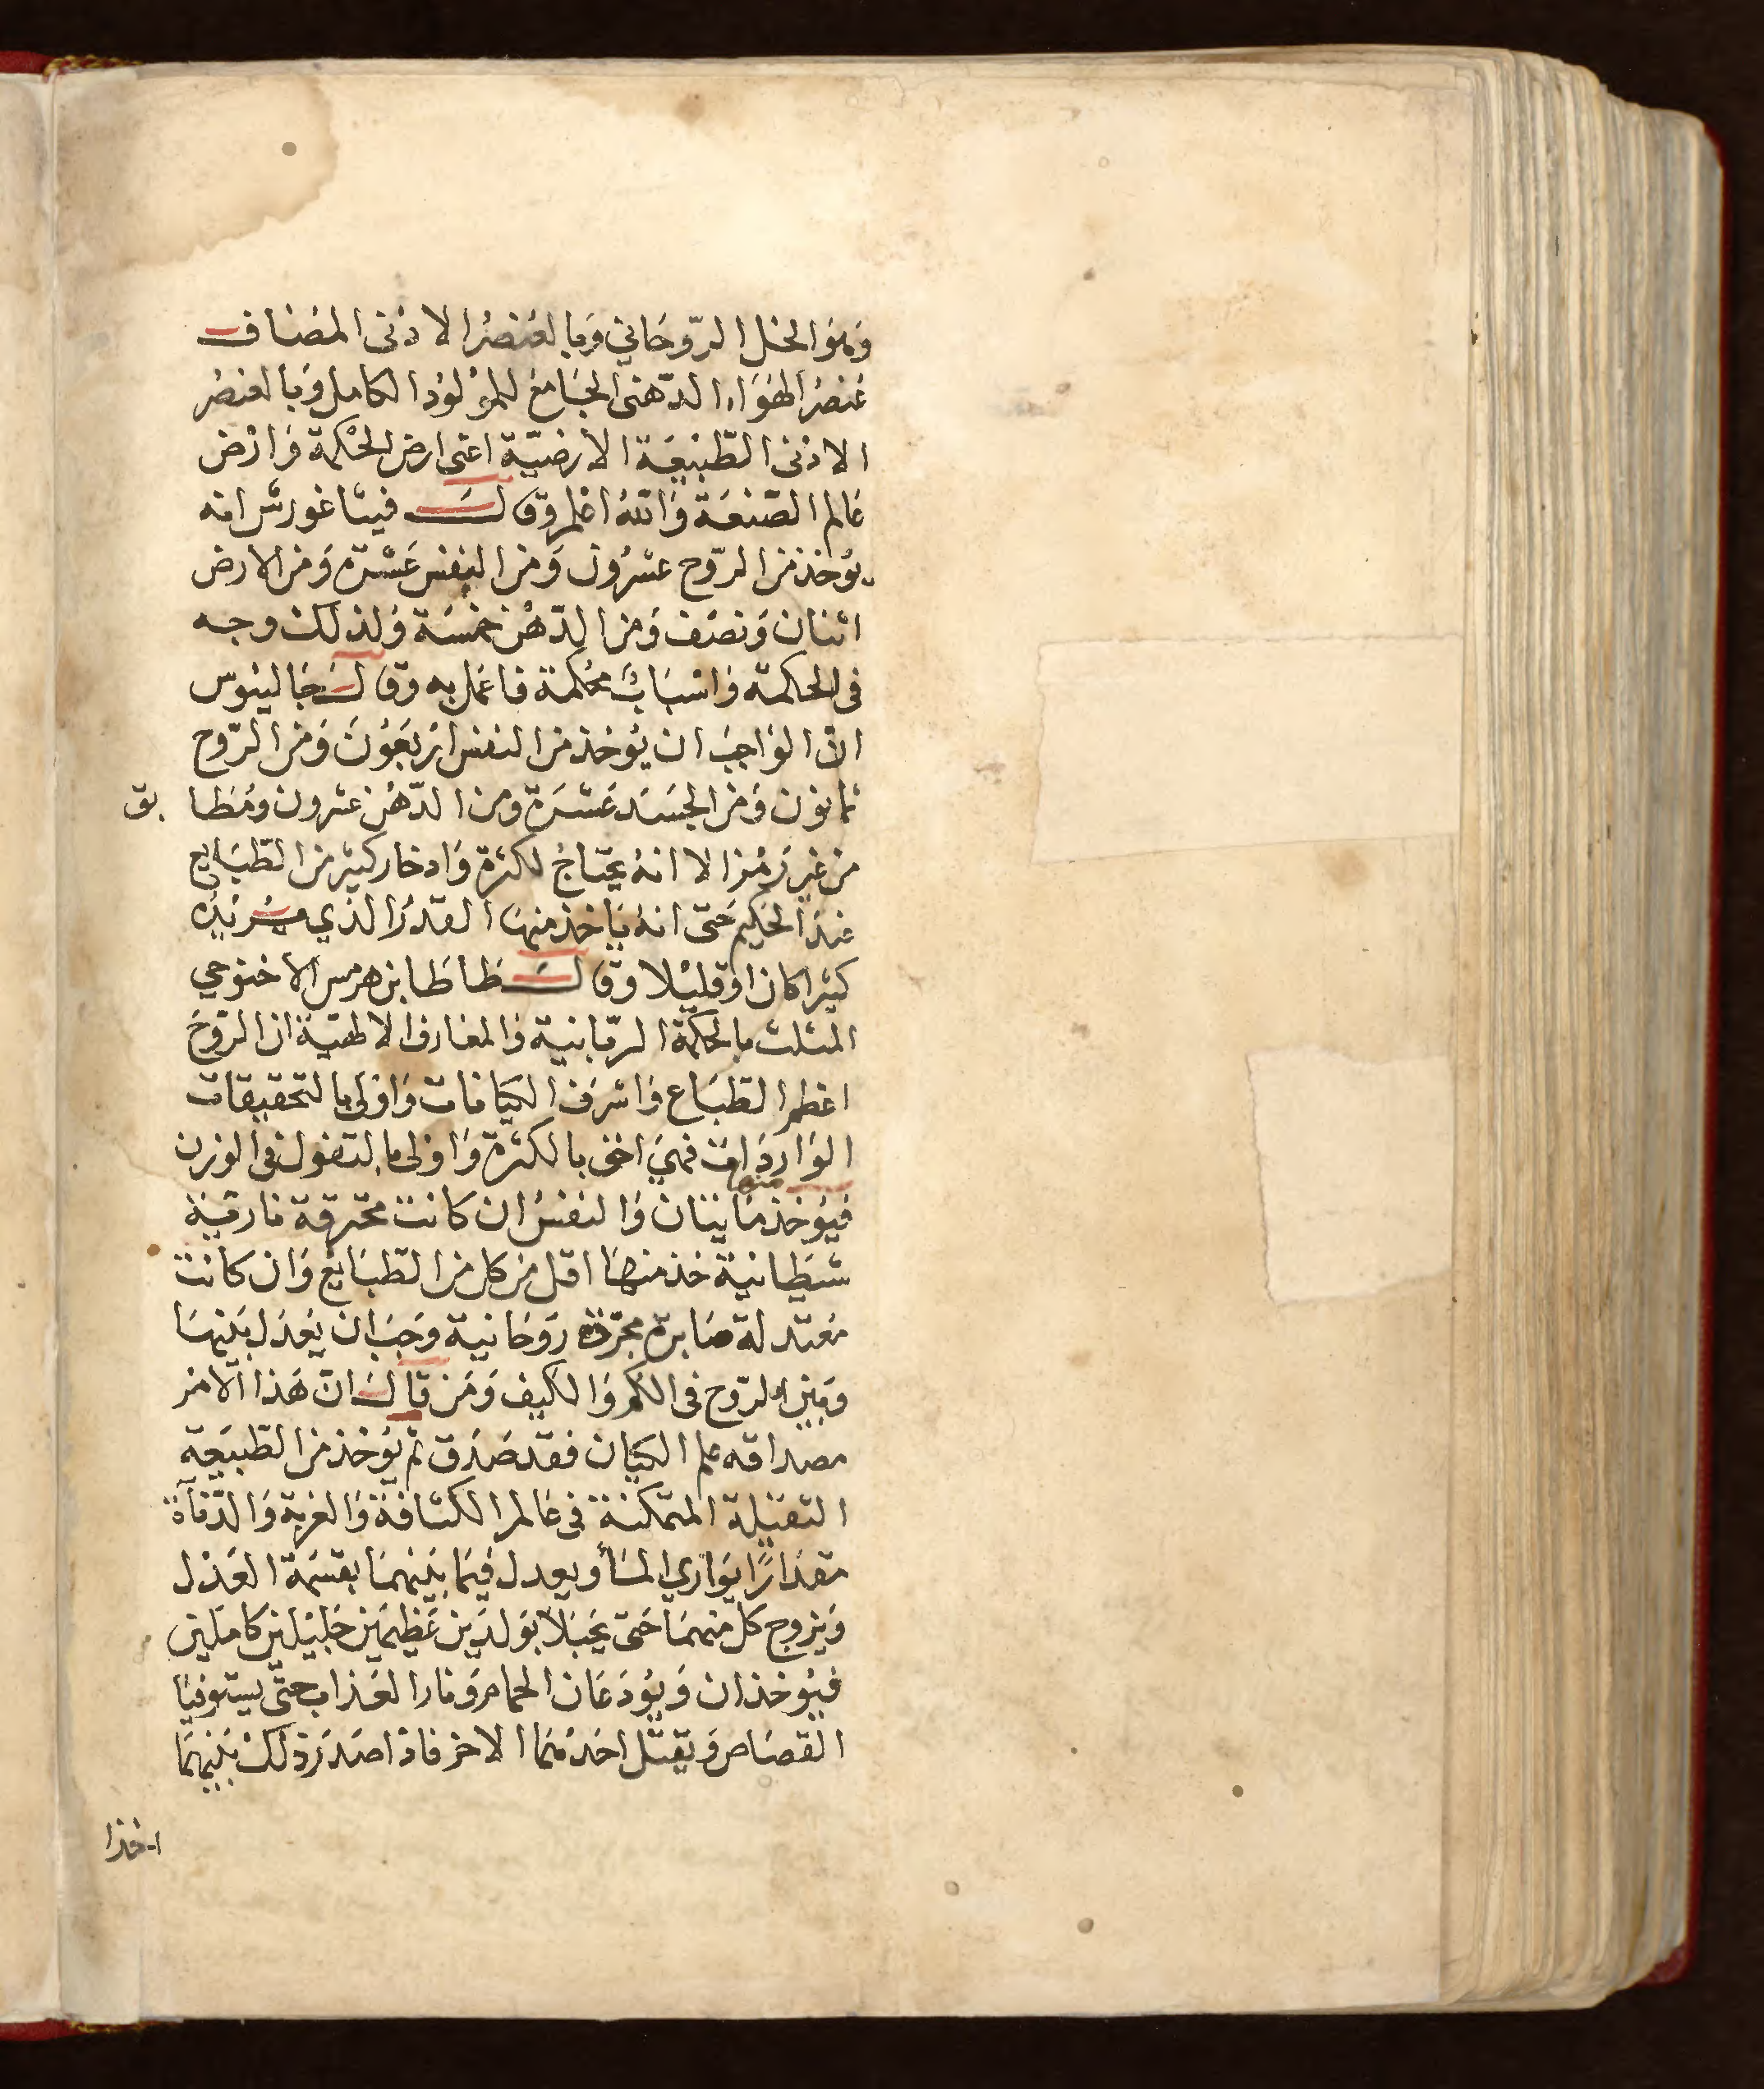 وَهوَ الخل الرّوحَاني وَبا لعُنصُر الادْنى المضَاف
عُنصُر الهوَاء الدّهنى الجَامعُ للموْلوُد الكامل وَبا لعنصُر
الادْنى الطّبيعَة الارْضيّة اعنى ارض الحْكمة وَارْض
عَالم الصّنعَة وَاللهُ اعْلم وَقالَ فيثاغورسْ انه
يوُخذ مَن الرّوح عشرُون وَمَن النفس عَشْرَة وَمَن الارض
اثنان وَنصَف وَمَن الدّهْن خمْسَة وَلذلكَ وجه
فى الحكمة وَاسْبَابٌ محُكمة فاعْمَل به وَقالَ جَالينوُس
انّ الوَاجبَ ان يُوخذ مَن النفس ارْبَعوُنَ وَمَن الرّوح
ثمانون وَمَن الجسَد عَشرَة ومن الدّهْن عشرون وَمُطا بق
مَن غير رَمْز الا انهُ يحتاجُ لكثرة وَادخار كثيْر مَن الطّبَايع
عندَ الحَكيم حَتى انهُ يَاخذ منهَا القدرُ الذي يُرَيْدُه
كثيْرا كان اوْ قليْلا وقالَ طاطا بن هرمس الاخنوخي
المثلث بالحكمَة الرّبانية وَالمعَارف الالهيّة ان الرّوحَ
اعْظمُ الطّبَاع وَاشرَف الكيَانات وَاوْلى بالتحقيقات
الوَاردَات فهيَ احَق بالكثرة وَاوْلى بالتفول فى الوزن
فيوُخذ منها مَايتان وَالنفسُ ان كانت محترقة نارقية
شيَطانية خذ منهَا اقل مَن كل مَن الطّبَايع وَان كانت
مُعتدلة صَابرة مجرّدَة روَحَانية وَجَبَ ان يعَدَل بَيْنهَا
وَبَين الرّوح فى الكم وَالكيف وَمَن قالَ انّ هَذا الامْر
مصداقه علم الكيَان فقد صَدَق ثم يوُخذ مَن الطّبيَعة
الثقيْلة المتمكنة فى عَالم الكثافة وَالغربة وَالدّنآة
مقدَارًا يوَازي المَأ ويعدل فيْمَا بيْنهمَا بقسْمَة العَدْل
وَيزوج كل منهمَا حَتى يحَبَلا بوَلدَين عَظيْمَين جَليْلين كاملَين
فيُوخذان وَيوُدَعَان الحمام وَنار العَذاب حتّى يستوفيَا
القصَاص وَيقتل احَدُهمَا الاخر فاذا صَدَرَ ذلكَ بَيْنهمَا
اخذا